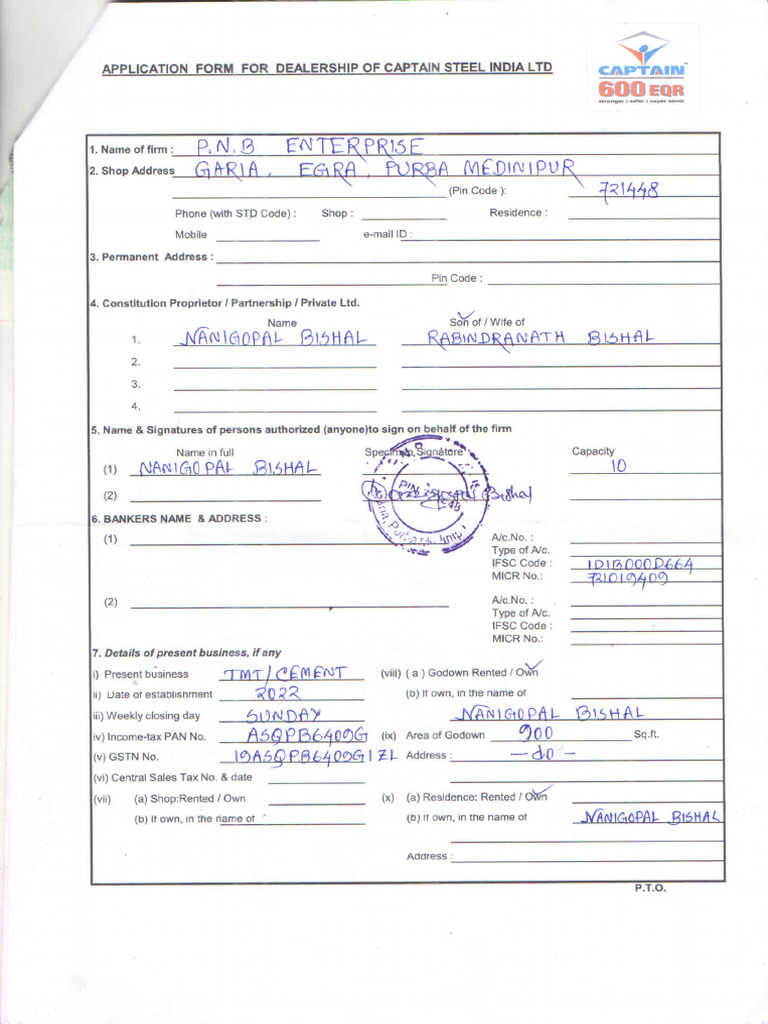 APPLICATION FORM FOR DEALERSHIP OF CAPTAIN STEEL INDIA LTD
CAPTAIN
600 EQR
stronger | safer | super saver
1. Name of firm : P.N.B ENTERPRISE
2. Shop Address GARIA, EGRA, PURBA MEDINIPUR
(Pin Code ): 721448
Phone (with STD Code) : Shop : Residence :
Mobile e-mail ID :
3. Permanent Address :
Pin Code :
4. Constitution Proprietor / Partnership / Private Ltd.
Name Son of / Wife of
1. NANIGOPAL BISHAL RABINDRANATH BISHAL
2.
3.
4.
5. Name & Signatures of persons authorized (anyone)to sign on behalf of the firm
Name in full Specimen Signature Capacity
(1) NANIGOPAL BISHAL 10
(2) Bishal
6. BANKERS NAME & ADDRESS :
(1) A/c.No. :
Type of A/c.
IFSC Code : IDIB000D664
MICR No.: 721019409
(2) A/c.No. :
Type of A/c.
IFSC Code :
MICR No.:
7. Details of present business, if any
i) Present business TMT/CEMENT (viii) ( a ) Godown Rented / Own
ii) Date of establishment 2022 (b) If own, in the name of
iii) Weekly closing day SUNDAY NANIGOPAL BISHAL
iv) Income-tax PAN No. ASQPB6409G (ix) Area of Godown 900 Sq.ft.
(v) GSTN No. 19ASQPB6409G1ZL Address : -do-
(vi) Central Sales Tax No. & date
(vii) (a) Shop:Rented / Own (x) (a) Residence: Rented / Own
(b) If own, in the name of (b) If own, in the name of NANIGOPAL BISHAL
Address :
P.T.O.